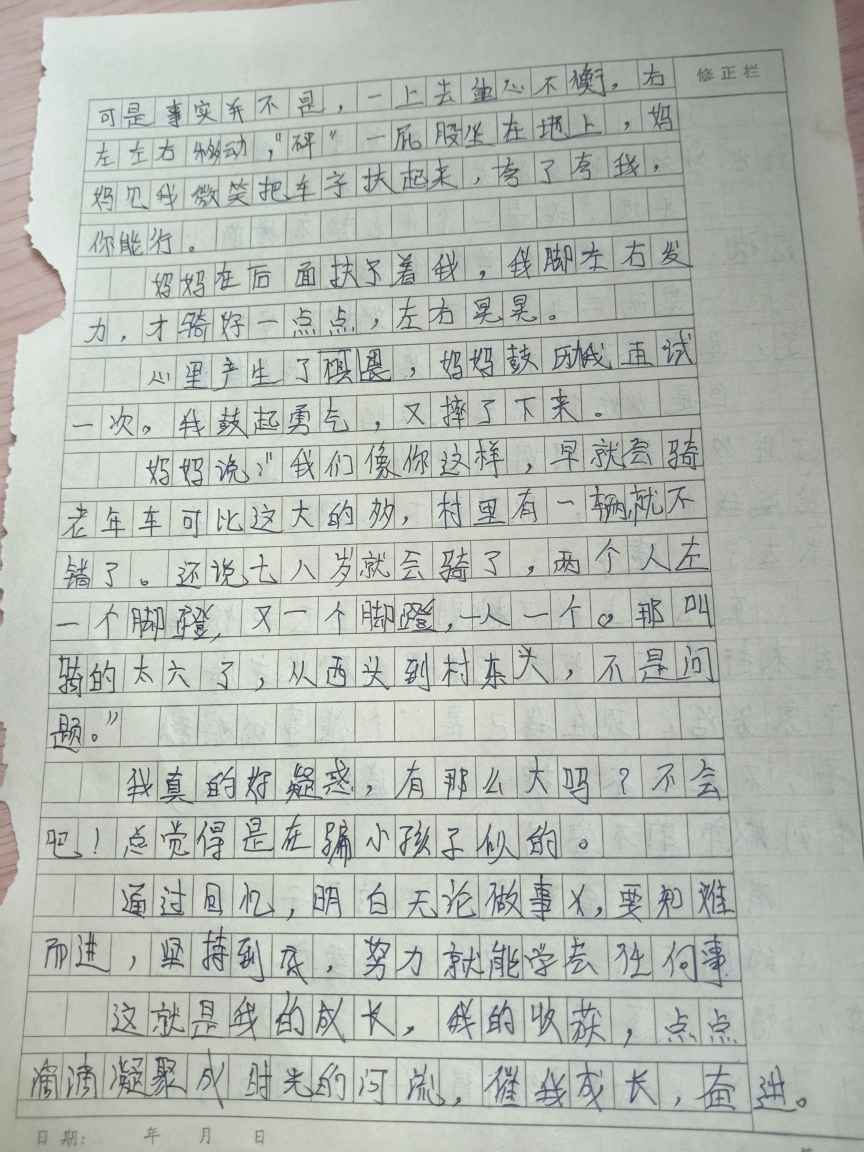 修正栏
可是事实并不是，一上去重心不衡，右
左左右移动，“砰”一屁股坐在地上，妈
妈见我微笑把车子扶起来，夸了夸我，
你能行。
妈妈在后面扶着我，我脚左右发
力，才骑好一点点，左右晃晃。
心里产生了惧畏，妈妈鼓励我再试
一次。我鼓起勇气，又摔了下来。
妈妈说：“我们像你这样，早就会骑
老年车可比这大的多，村里有一辆就不
错了。还说七八岁就会骑了，两个人左
一个脚蹬，又一个脚蹬，一人一个。那叫
骑的太六了，从西头到村东头，不是问
题。”
我真的好疑惑，有那么大吗？不会
吧！总觉得是在骗小孩子似的。
通过回忆，明白无论做事，要知难
而进，坚持到底，努力就能学会任何事
这就是我的成长，我的收获，点点
滴滴凝聚成时光的河流，催我成长，奋进。
日期：　年　月　日